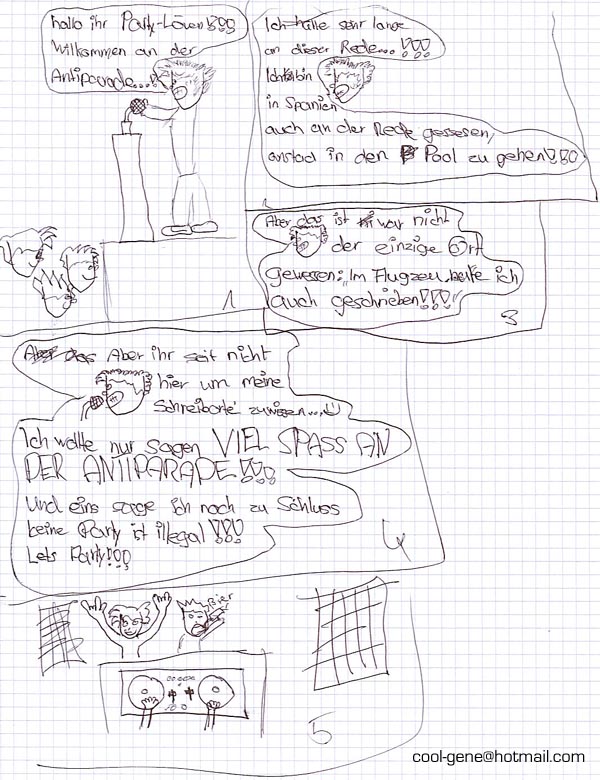 hallo ihr Party-Löwen!!!
willkommen an der
Antiparade...!!
1
Ich hatte sehr lange
an dieser Rede...!!!
Ich bin
in Spanien
auch an der Rede gesessen,
anstad in den Pool zu gehen!!!
Aber das ist war nicht
der einzige Ort
gewessen. Im Flugzeu hatte ich
auch geschrieben!!!!
3
Aber das Aber ihr seit nicht
hier um meine
Schreiborte zu wissen...
Ich wollte nur sagen VIEL SPASS AN
DER ANTIPARADE!!!
Und eins sage ich noch zu Schluss
keine Party ist illegal!!!
Lets Party!!!
4
Bier
5
cool-gene@hotmail.com